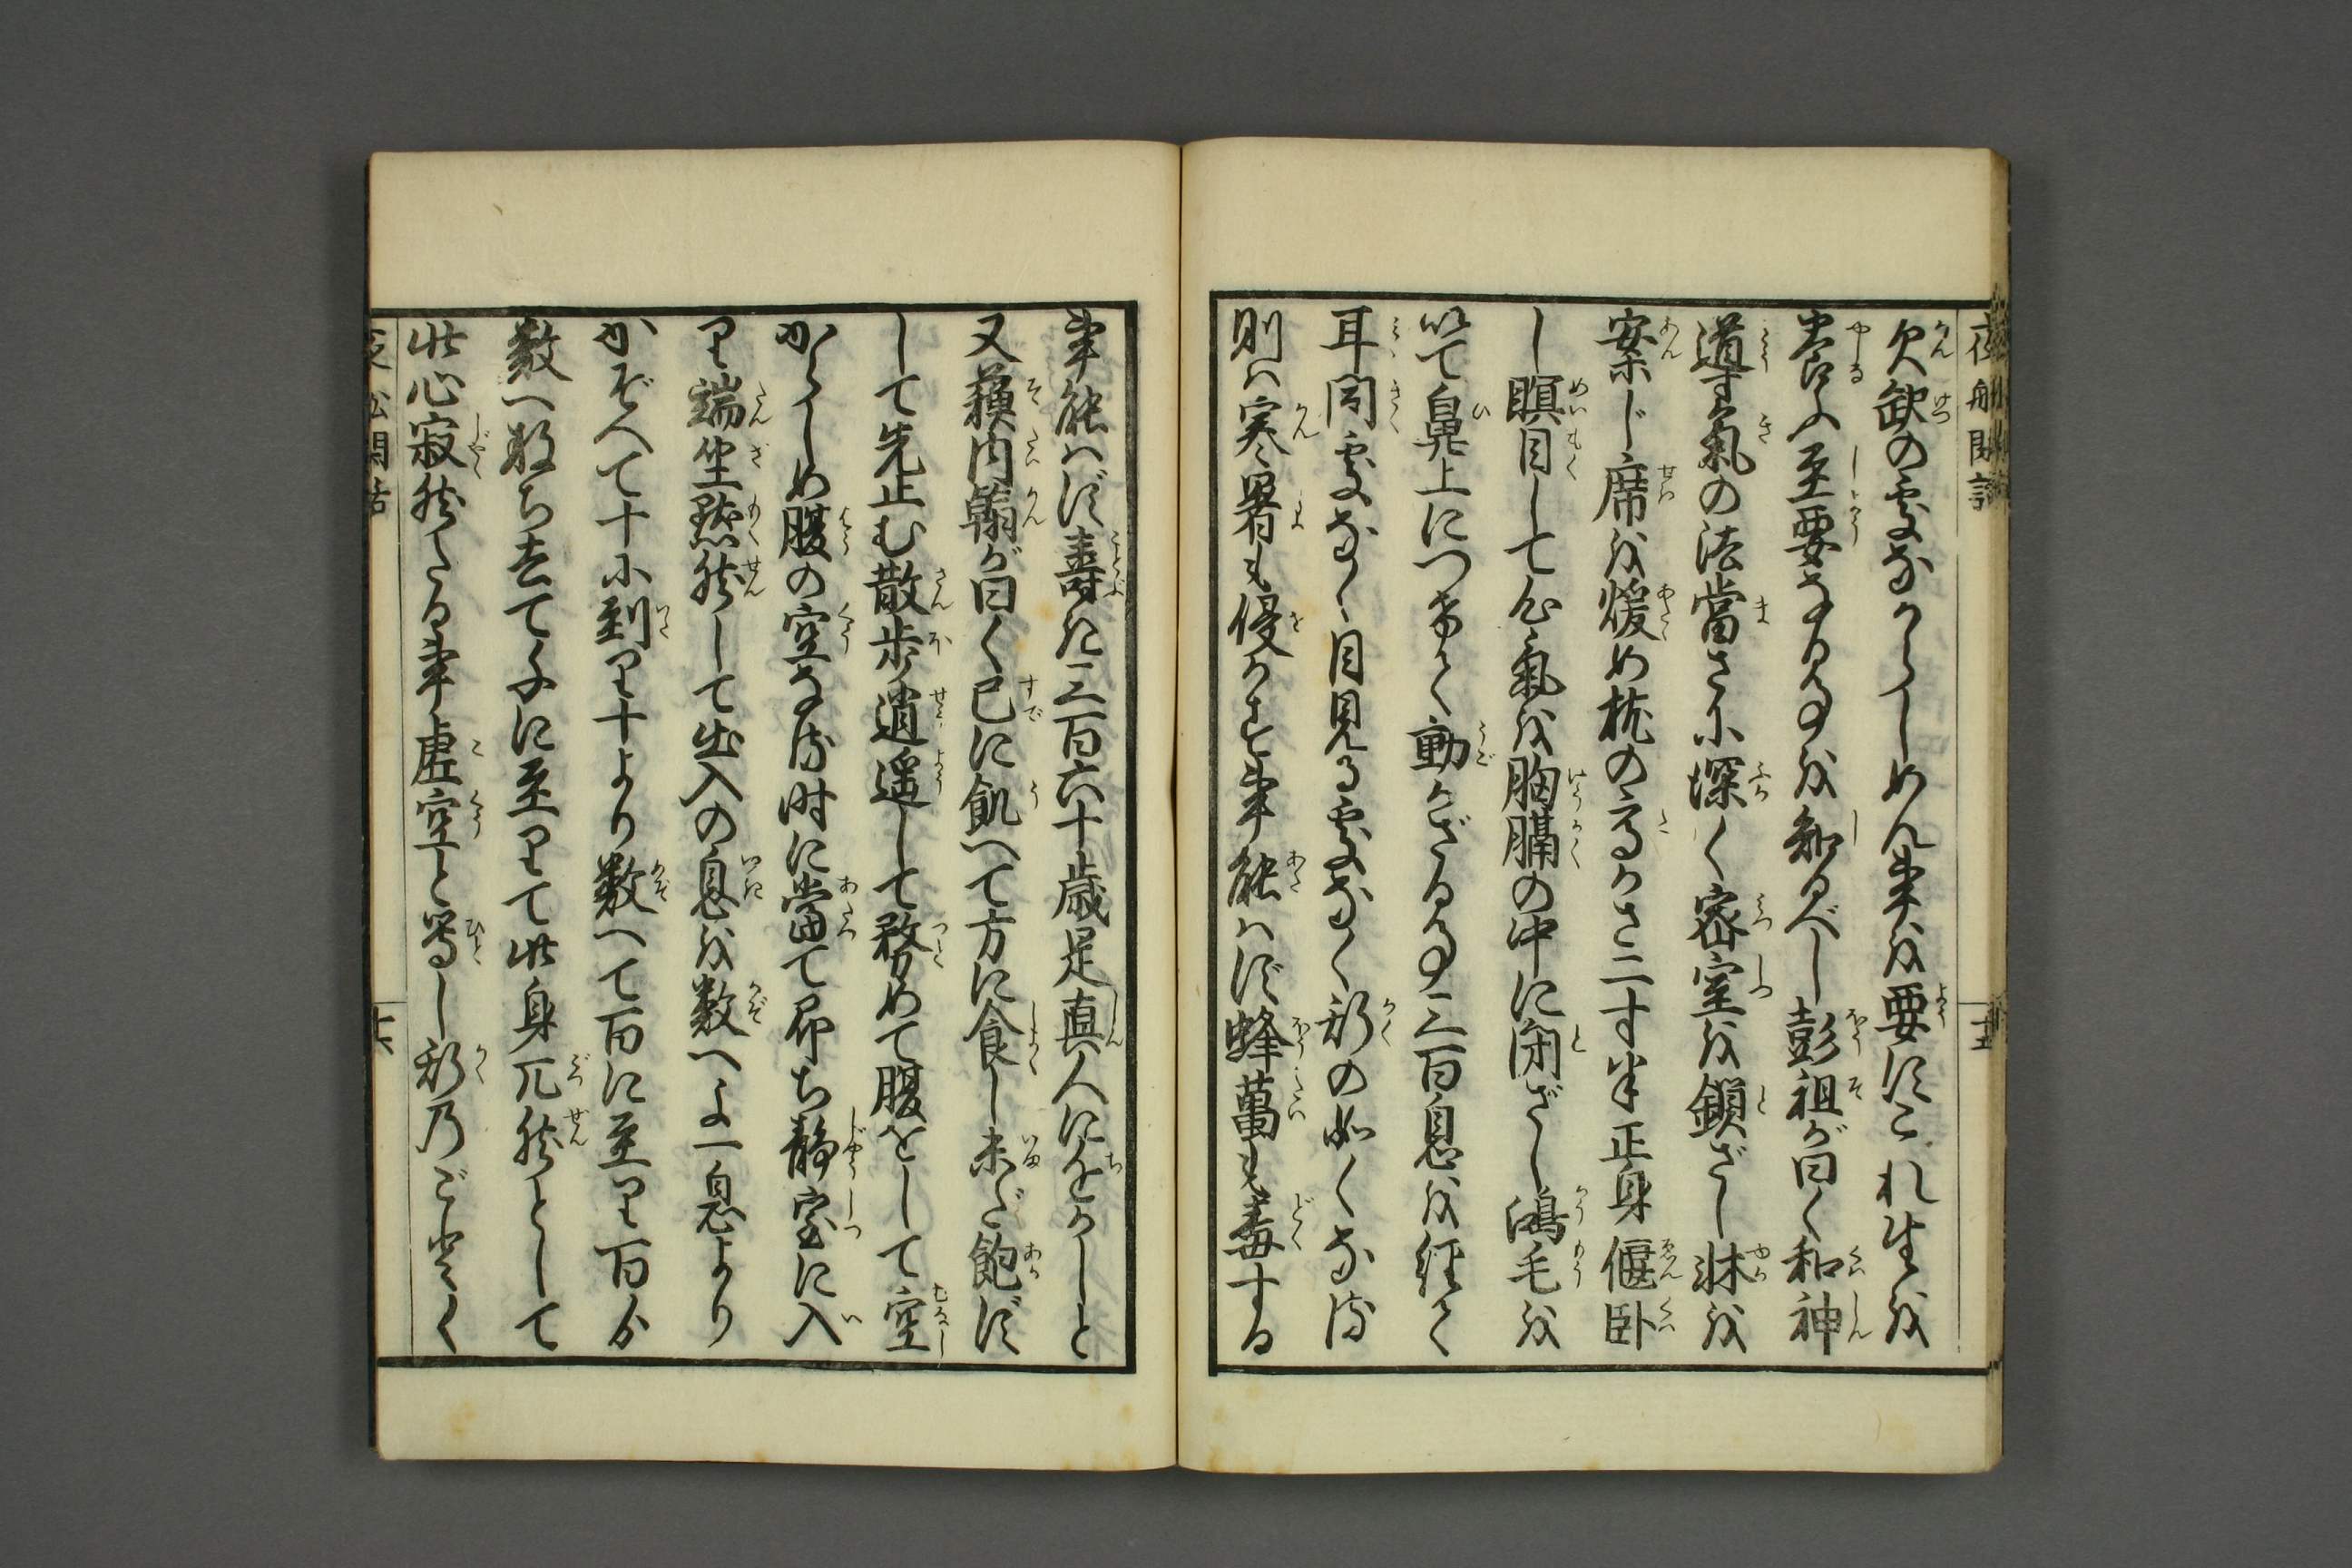 夜船閑話
十五
欠缺の處なからしめん事を要すこれ生を
養ふ至要なる事を知るべし彭祖が曰く和神
導氣の法當さに深く密室を鎖ざし牀を
案じ席を煖め枕の高さ二寸半正身偃臥
し瞑目して心氣を胸膈の中に閉ざし鴻毛を
以て鼻上につけて動かざる事三百息を經て
耳聞く處なく目見る處なく斯の如くなる
則は寒暑も侵かす事能はず蜂蠆も毒する
事能はず壽き三百六十歳是真人にちかしと
又蘇内翰が曰く已に飢へて方に食し未だ飽ず
して先止む散歩逍遥して務めて腹をして空
からしめ腹の空なる時に當て即ち靜室に入
り端坐默然して出入の息を數へよ一息より
かぞへて十に到り十より數へて百に至り百より
數へ放ち去て千に至りて此身兀然として
此心寂然たる事虚空と等し斯のごとく
夜船閑話
十六